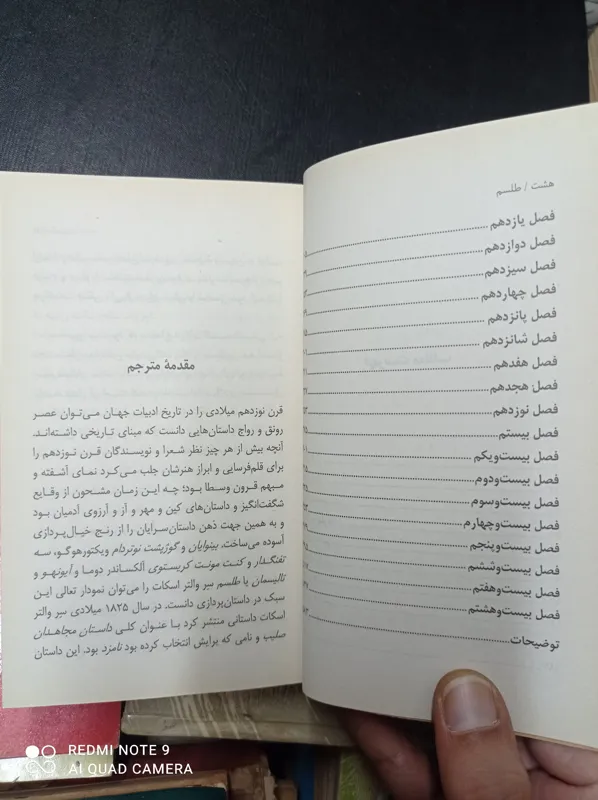 هشت / طلسم
فصل یازدهم
فصل دوازدهم
فصل سیزدهم
فصل چهاردهم
فصل پانزدهم
فصل شانزدهم
فصل هفدهم
فصل هجدهم
فصل نوزدهم
فصل بیستم
فصل بیست‌ویکم
فصل بیست‌ودوم
فصل بیست‌وسوم
فصل بیست‌وچهارم
فصل بیست‌وپنجم
فصل بیست‌وششم
فصل بیست‌وهفتم
فصل بیست‌وهشتم
توضیحات
مقدمهٔ مترجم
قرن نوزدهم میلادی را در تاریخ ادبیات جهان می‌توان عصر
رونق و رواج داستان‌هایی دانست که مبنای تاریخی داشته‌اند.
آنچه بیش از هر چیز نظر شعرا و نویسندگان قرن نوزدهم را
برای قلم‌فرسایی و ابراز هنرشان جلب می‌کرد نمای آشفته و
مبهم قرون وسطا بود؛ چه این زمان مشحون از وقایع
شگفت‌انگیز و داستان‌های کین و مهر و آز و آرزوی آدمیان بود
و به همین جهت ذهن داستان‌سرایان را از رنج خیال‌پردازی
آسوده می‌ساخت. بینوایان و گوژپشت نوتردام ویکتورهوگو، سه
تفنگدار و کنت مونت کریستوی آلکساندر دوما و آیونهو و
تالیسمان یا طلسم سِر والتر اسکات را می‌توان نمودار تعالی این
سبک در داستان‌پردازی دانست. در سال ۱۸۲۵ میلادی سِر والتر
اسکات داستانی منتشر کرد با عنوان کلی داستان مجاهدان
صلیب و نامی که برایش انتخاب کرده بود نامزد بود. این داستان
REDMI NOTE 9
AI QUAD CAMERA